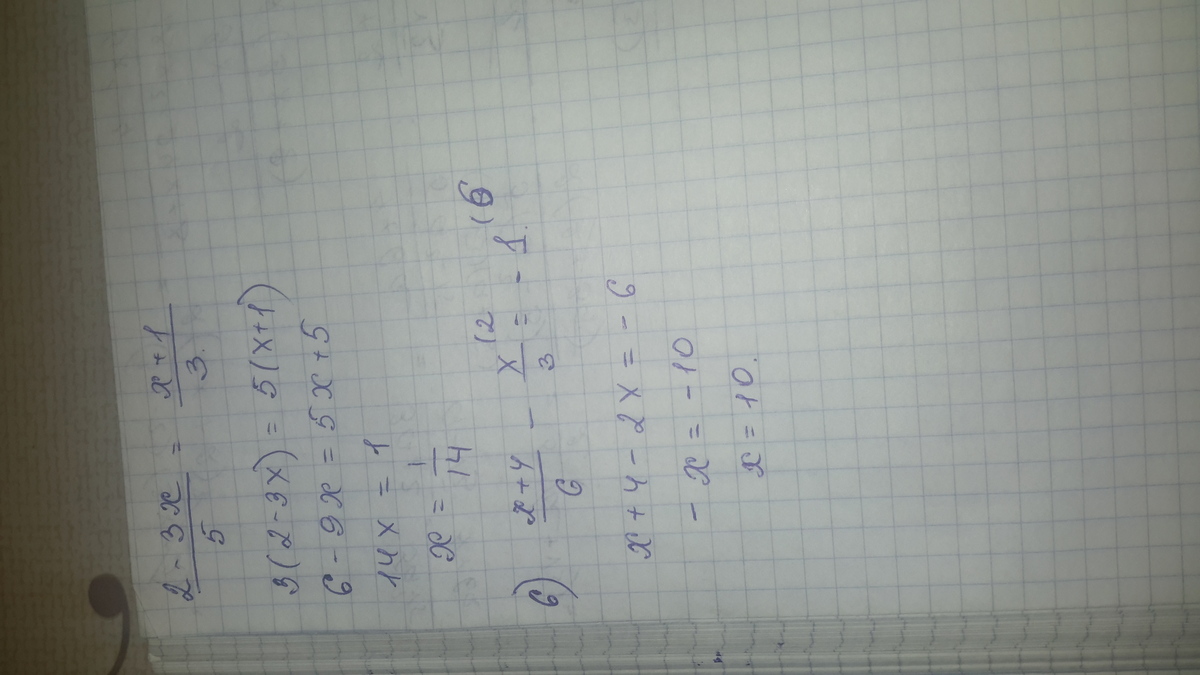 2 - 3x / 5 = x + 1 / 3.
3(2-3x) = 5(x+1)
6 - 9x = 5x + 5
14x = 1
x = 1/14
б) x+4 / 6 - x / 3 (2 = - 1. (6
x + 4 - 2x = - 6
- x = - 10
x = 10.